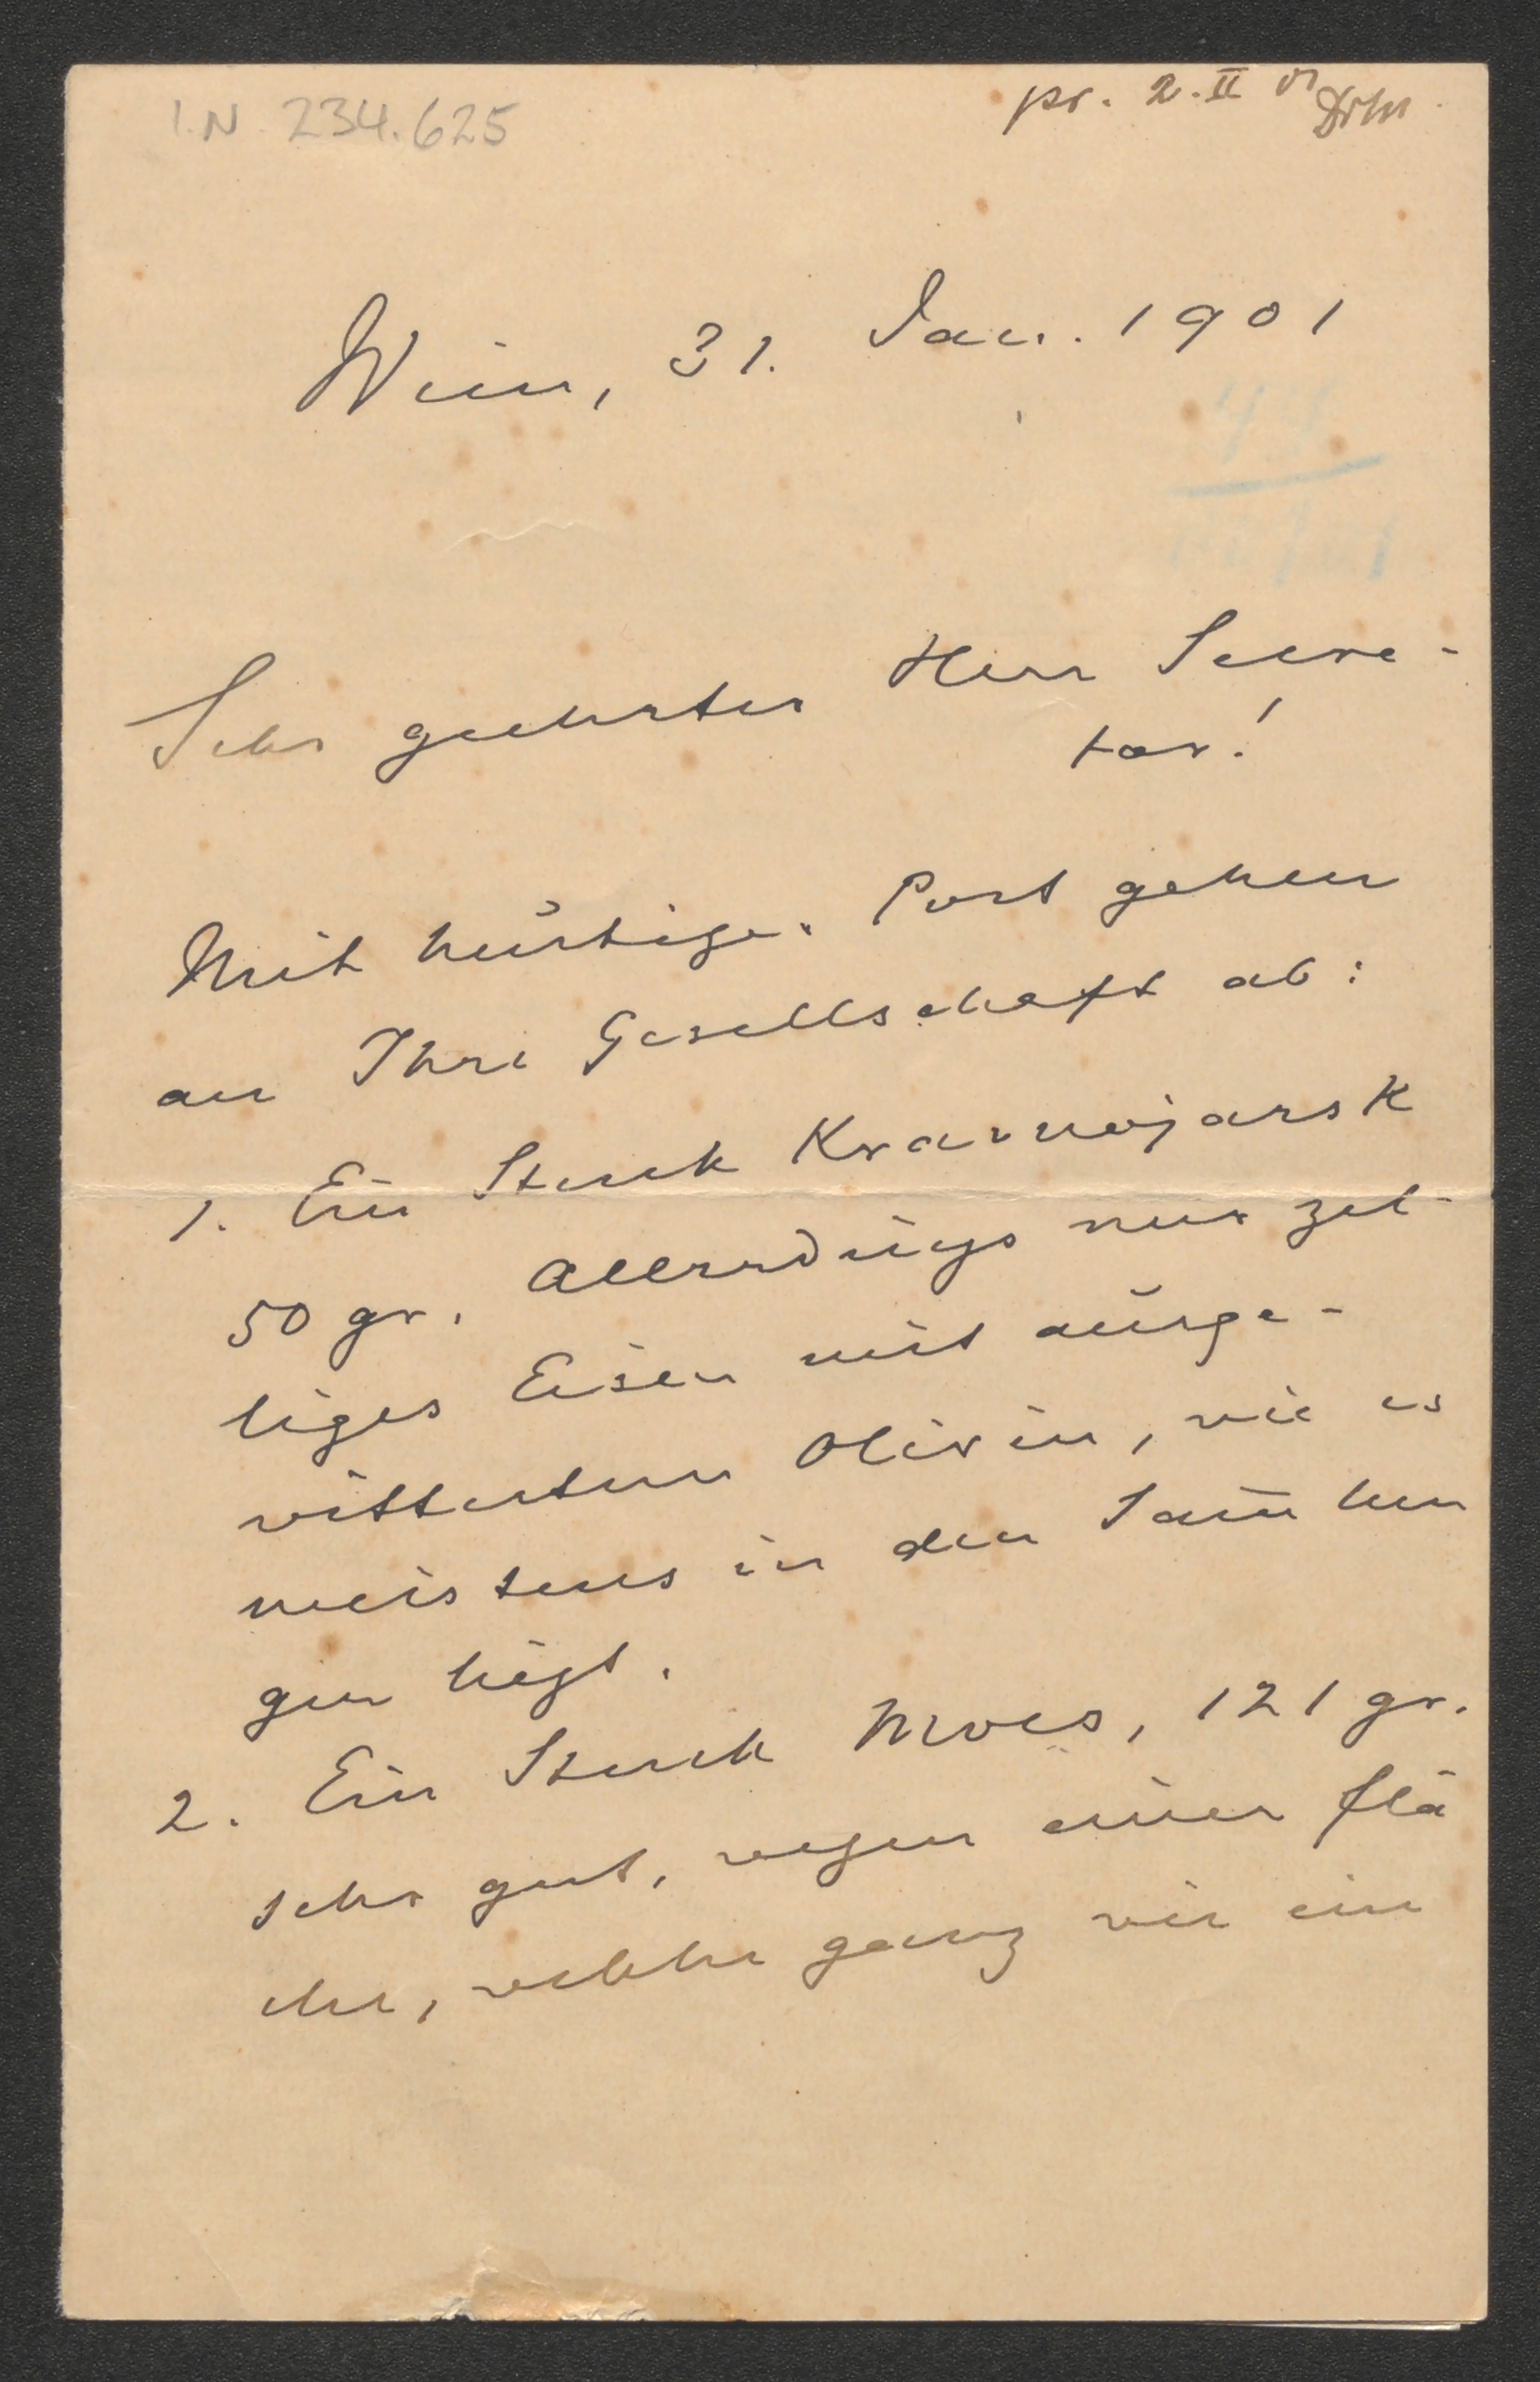 I.N. 234.625
pr. 2. II 01
Wien, 31. Jan. 1901
Sehr geehrter Herr Secre-
tär!
Mit heutiger Post gehen
an Ihre Gesellschaft ab:
1. Ein Stück Krasnojarsk
50 gr. Allerdings nur zel-
liges Eisen mit ausge-
wittertem Olivin, wie es
meistens in den Sam̄lun
gen liegt.
2. Ein Stück Mocs, 121 gr.
sehr gut, wegen einer Flä
che, welche ganz wie ein